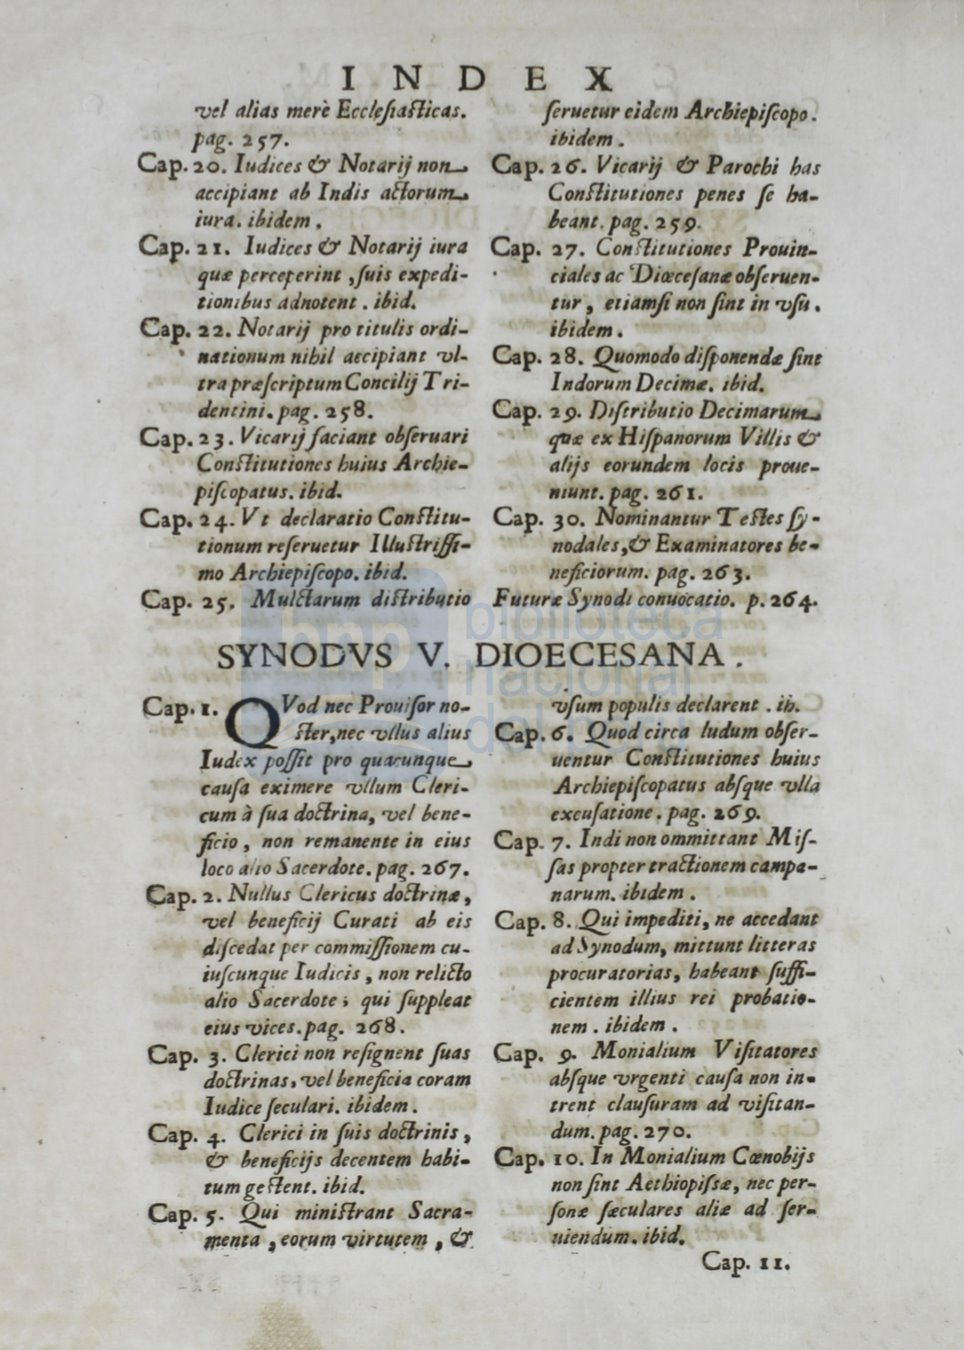 INDEX
vel alias merè Ecclesiasticas.
pag. 257.
Cap. 20. Iudices & Notarij non
accipiant ab Indis actorum
iura. ibidem.
Cap. 21. Iudices & Notarij iura
quæ perceperint, suis expedi-
tionibus adnotent. ibid.
Cap. 22. Notarij pro titulis ordi-
nationum nihil accipiant vl-
tra præscriptum Concilij Tri-
dentini. pag. 258.
Cap. 23. Vicarij faciant obseruari
Constitutiones huius Archie-
piscopatus. ibid.
Cap. 24. Vt declaratio Constitu-
tionum reseruetur Illustrissi-
mo Archiepiscopo. ibid.
Cap. 25. Mulctarum distributio
seruetur eidem Archiepiscopo.
ibidem.
Cap. 26. Vicarij & Parochi has
Constitutiones penes se ha-
beant. pag. 259.
Cap. 27. Constitutiones Prouin-
ciales ac Diœcesanæ obseruen-
tur, etiamsi non sint in vsu.
ibidem.
Cap. 28. Quomodo disponendæ sint
Indorum Decimæ. ibid.
Cap. 29. Distributio Decimarum
quæ ex Hispanorum Villis &
alijs eorundem locis proue-
niunt. pag. 261.
Cap. 30. Nominantur Testes sy-
nodales, & Examinatores be-
neficiorum. pag. 263.
Futuræ Synodi conuocatio. p. 264.
SYNODVS V. DIOECESANA.
Cap. 1. QVod nec Prouisor no-
ster, nec vllus alius
Iudex possit pro quacunque
causa eximere vllum Cleri-
cum à sua doctrina, vel bene-
ficio, non remanente in eius
loco alio Sacerdote. pag. 267.
Cap. 2. Nullus Clericus doctrinæ,
vel beneficij Curati ab eis
discedat per commissionem cu-
iuscunque Iudicis, non relicto
alio Sacerdote; qui suppleat
eius vices. pag. 268.
Cap. 3. Clerici non resignent suas
doctrinas, vel beneficia coram
Iudice seculari. ibidem.
Cap. 4. Clerici in suis doctrinis,
& beneficijs decentem habi-
tum gestent. ibid.
Cap. 5. Qui ministrant Sacra-
menta, eorum virtutem, &
vsum populis declarent. ib.
Cap. 6. Quod circa ludum obser-
uentur Constitutiones huius
Archiepiscopatus absque vlla
excusatione. pag. 269.
Cap. 7. Indi non ommittant Mis-
sas propter tractionem campa-
narum. ibidem.
Cap. 8. Qui impediti, ne accedant
ad Synodum, mittunt litteras
procuratorias, habeant suffi-
cientem illius rei probatio-
nem. ibidem.
Cap. 9. Monialium Visitatores
absque vrgenti causa non in-
trent clausuram ad visitan-
dum. pag. 270.
Cap. 10. In Monialium Cœnobijs
non sint Aethiopissæ, nec per-
sonæ sæculares aliæ ad ser-
uiendum. ibid.
Cap. 11.
bnp
biblioteca
nacional
del